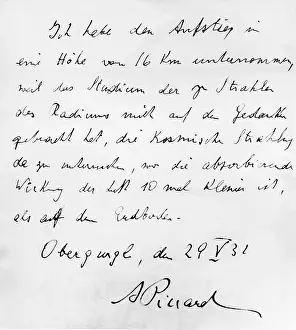 Ich habe den Aufstieg in
eine Höhe von 16 Km unternommen,
weil das Studium der γ Strahlen
des Radiums mich auf den Gedanken
gebracht hat, die Kosmische Strahlung
da zu untersuchen, wo die absorbierende
Wirkung der Luft 10 mal kleiner ist,
als auf dem Erdboden.
Obergurgl, den 29 V 31
A Piccard